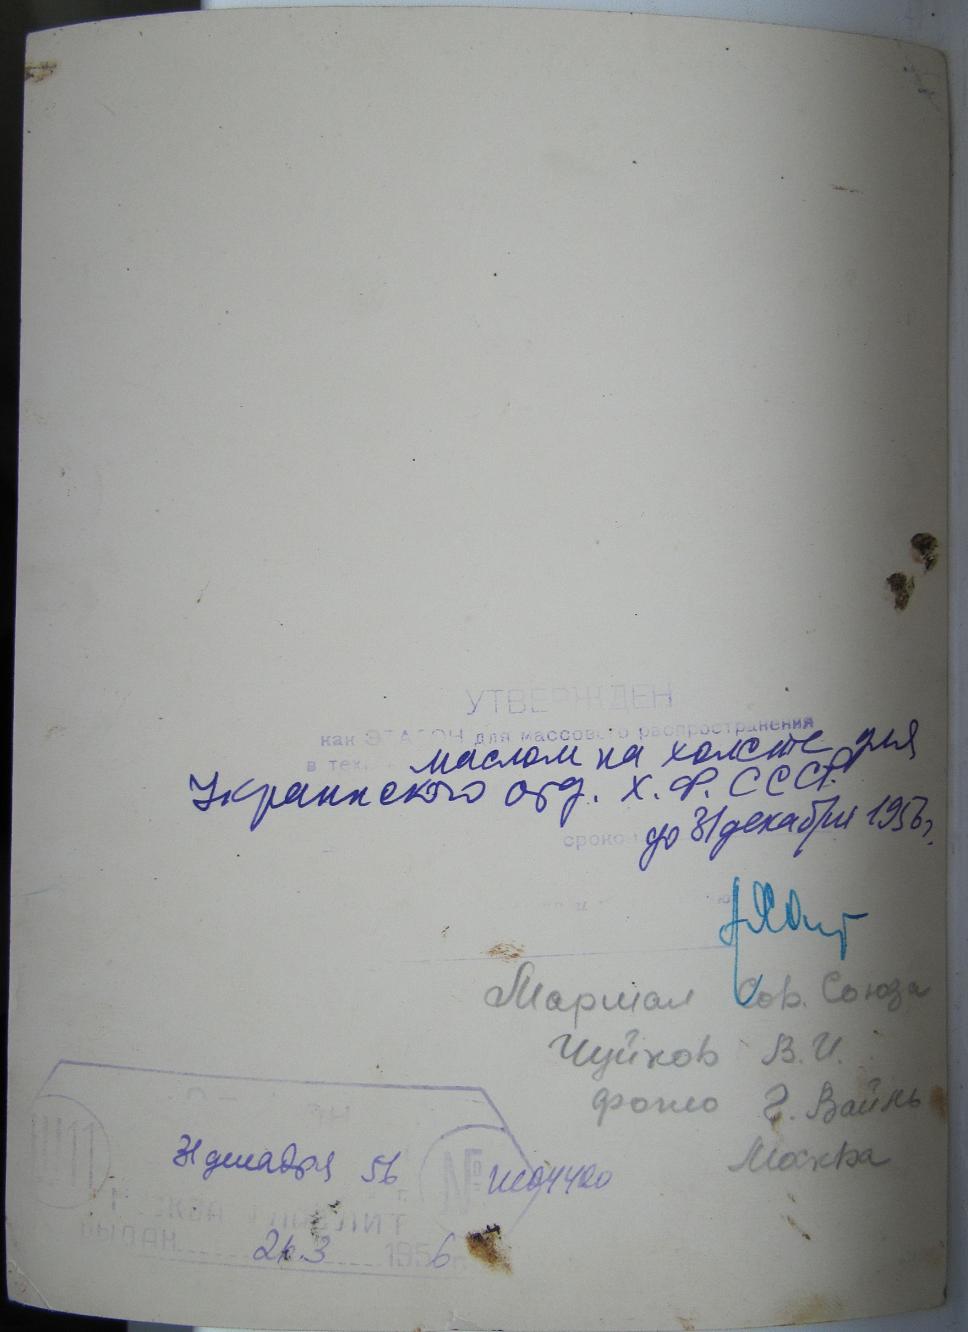 УТВЕРЖДЕН
как ЭТАЛОН для массового распространения
в тех
маслом на холсте для
Украинского отд. Х. Ф. СССР.
сроком
до 31 декабря 1956 г.
Маршал Сов. Союза
Чуйков В. И.
фото Г. Вайль
Москва
31 декабря 56 №
ГЛАВЛИТ
ВЫДАН 24.3 1956